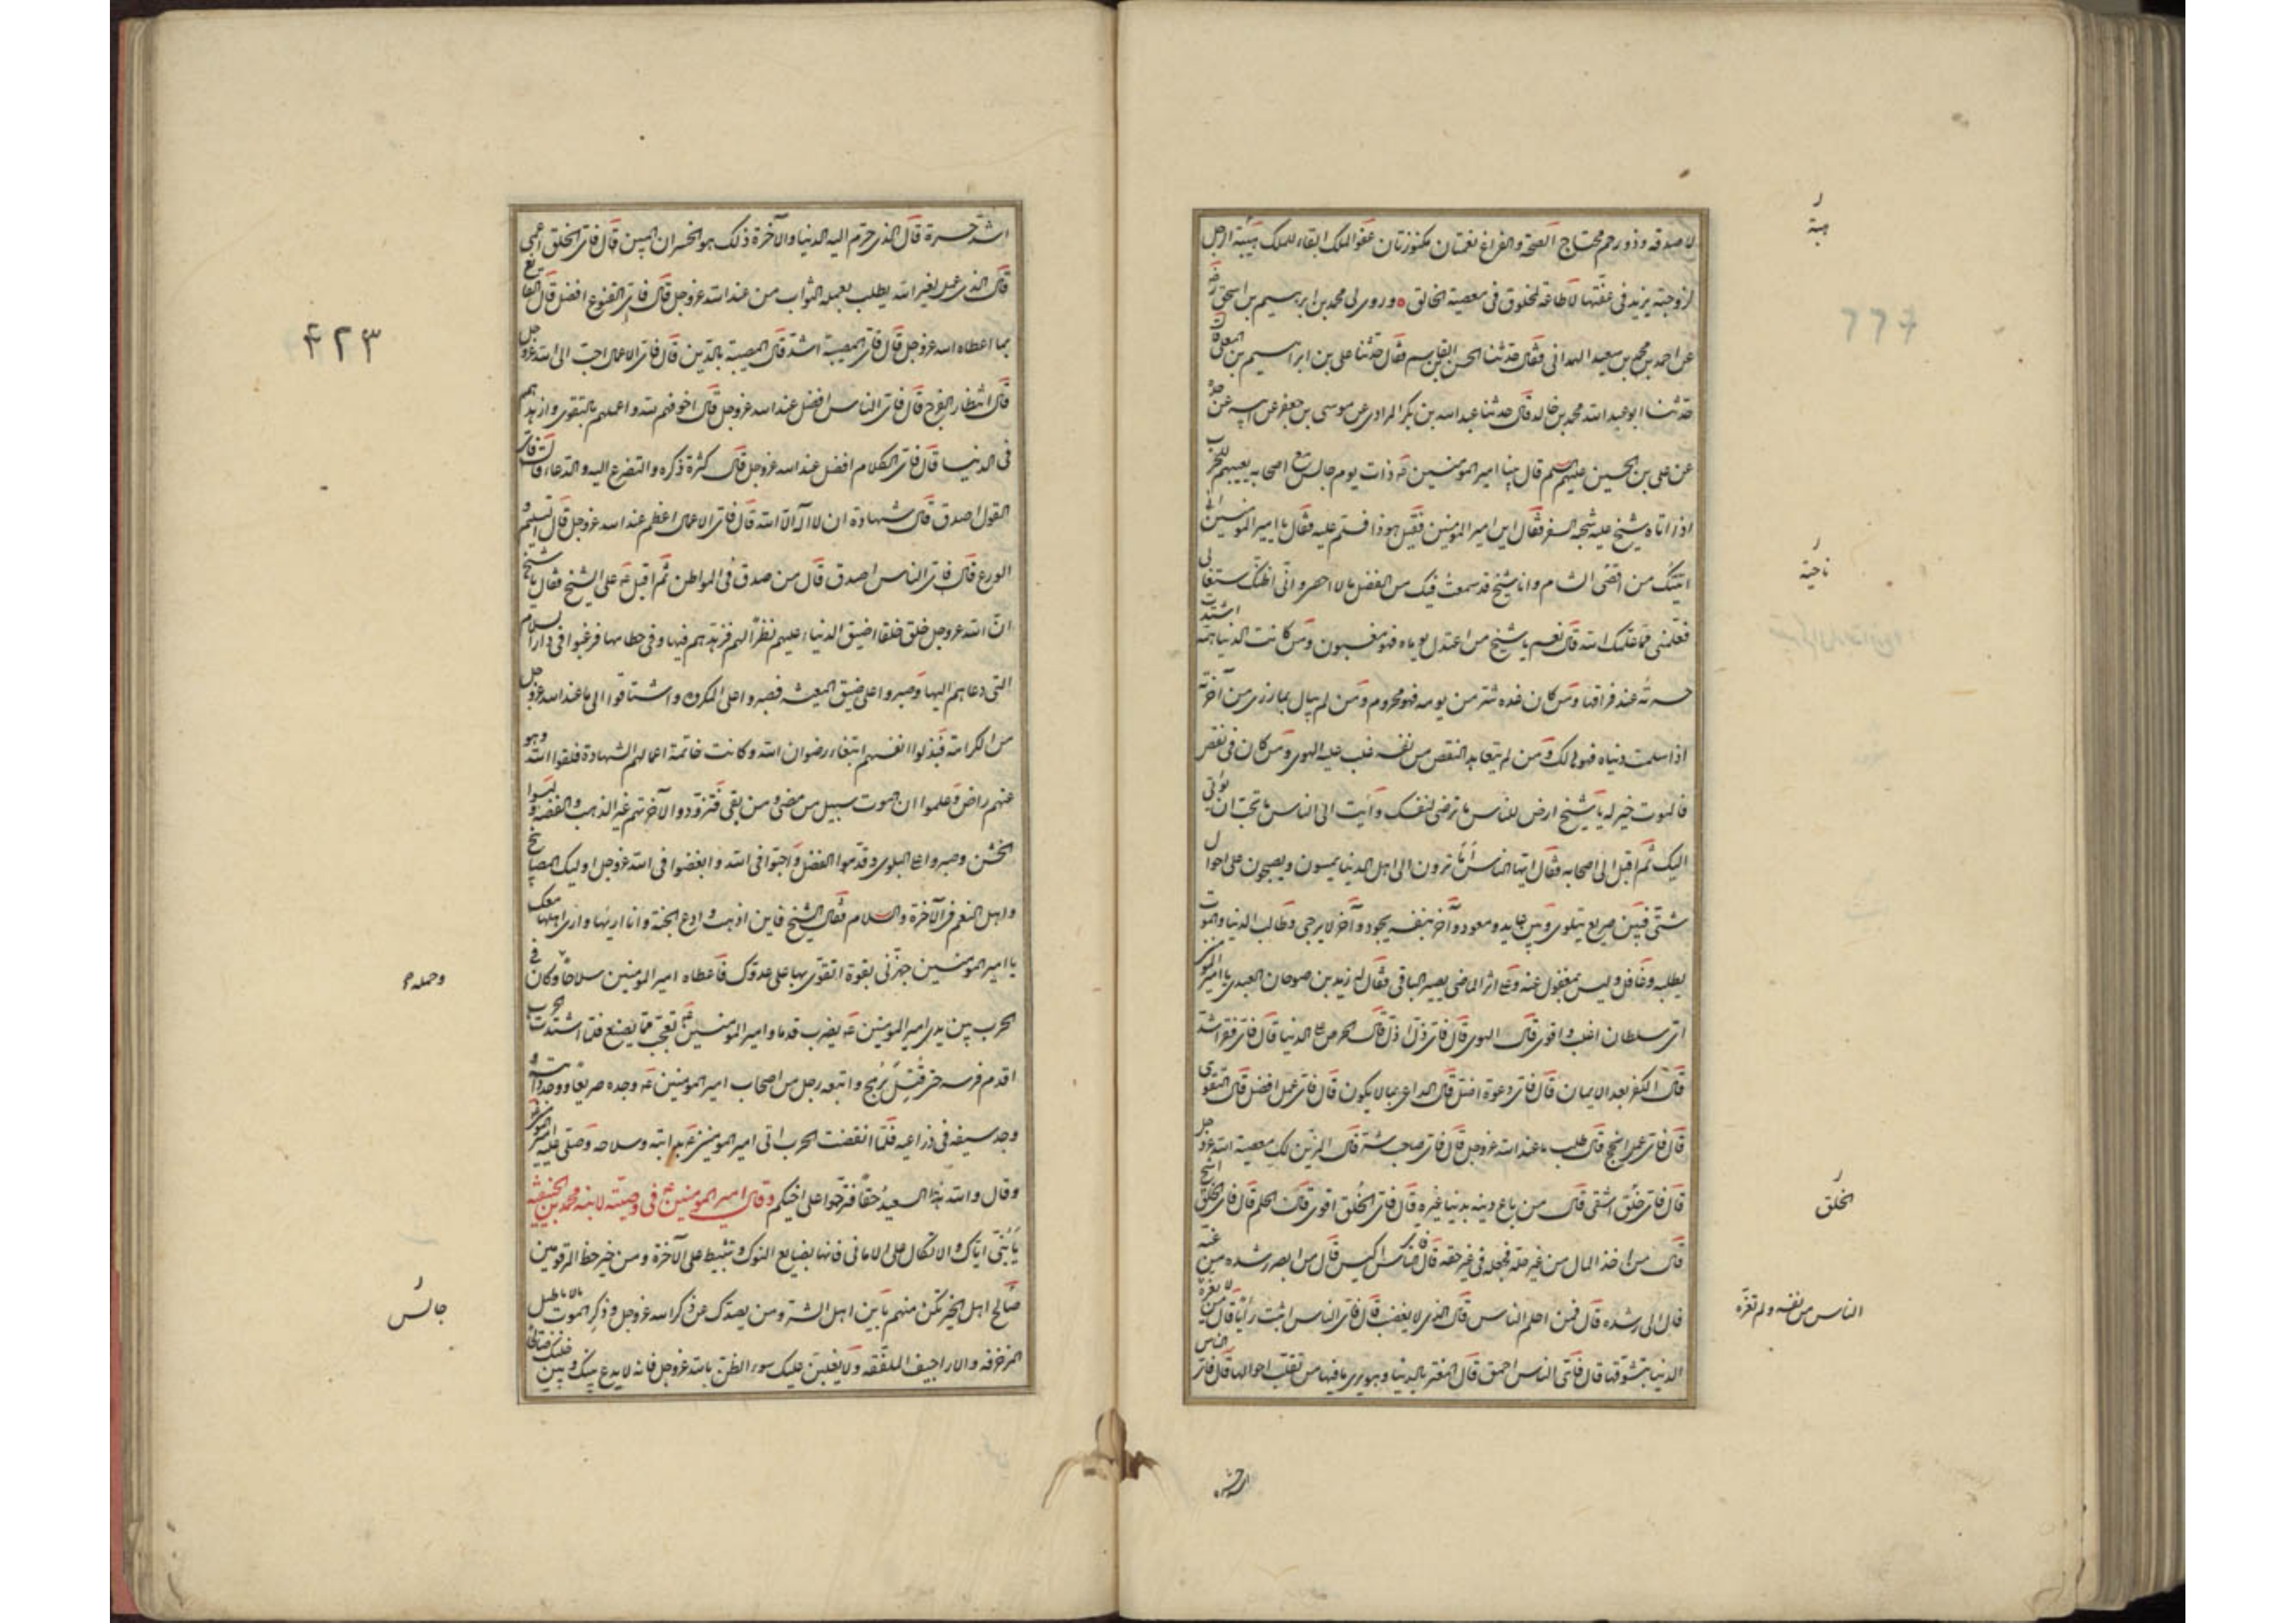 لا صدقة وذو رحم محتاج الصحة والفراغ نعمتان مكفوزتان عفو الملك ابقاء للملك هيبة الرجل
لزوجته يزيد فى عفتها لا طاعة لمخلوق فى معصية الخالق وروى لى محمد بن ابرهيم بن اسحق رض
عن احمد بن محمد بن سعيد الهمدانى فقال حدثنا الحسن بن القاسم فقال حدثنا على بن ابراهيم بن المعلى قال
حدثنا ابو عبد الله محمد بن خالد قال حدثنا عبد الله بن بكر المرادى عن موسى بن جعفر عن ابيه عن جده
عن على بن الحسين عليهم السلم قال بينا امير المؤمنين ع ذات يوم جالس مع اصحابه يعبيهم للحرب
اذ اتاه شيخ عليه شجة السفر فقال اين امير المؤمنين فقيل هو ذا فسلم عليه فقال يا امير المؤمنين انى
اتيتك من اقصى الشام وانا شيخ قد سمعت فيك من الفضل ما لا احصر وانى اظنك ستغتال
فعلمنى مما علمك الله قال نعم يا شيخ من اعتدل يوماه فهو مغبون ومن كانت الدنيا همته اشتدت
حسرته عند فراقها ومن كان غده شر من يومه فهو محروم ومن لم يبال بما رزى من آخرته
اذا سلمت دنياه فهو هالك ومن لم يتعاهد النقص من نفسه غلب عليه الهوى ومن كان فى نقص
فالموت خير له يا شيخ ارض للناس ما ترضى لنفسك وآيت الى الناس ما تحب ان يؤتى
اليك ثم اقبل الى اصحابه فقال ايها الناس اما ترون الى اهل الدنيا يمسون ويصبحون على احوال
شتى فبين صريع يتلوى وبين عايد ومعود وآخر بنفسه يجود وآخر لا يرجى وطالب الدنيا والموت
يطلبه وغافل وليس بمغفول عنه وعلى اثر الماضى يصير الباقى فقال له زيد بن صوحان العبدى يا امير المؤمنين
اى سلطان اغلب واقوى قال الهوى قال فاى ذل اذل قال الحرص على الدنيا قال فاى فقر اشد
قال الكفر بعد الايمان قال فاى دعوة اضل قال الداعى بما لا يكون قال فاى عمل افضل قال التقوى
قال فاى عمل انجح قال طلب ما عند الله عز وجل قال فاى صاحب شر قال المزين لك معصية الله عز وجل
قال فاى خلق اشقى قال من باع دينه بدنيا غيره قال فاى الخلق اقوى قال الحلم قال فاى الخلق اشح
قال من اخذ المال من غير حله فجعله فى غير حقه قال فاى الناس اكيس قال من ابصر رشده من غيه
فمال الى رشده قال فمن احلم الناس قال الذى لا يغضب قال فاى الناس اثبت رأيا قال من لا تغره
الدنيا بتشوقها قال فاى الناس احمق قال المغتر بالدنيا وهو يرى ما فيها من تقلب احوالها قال فاى الناس
هيبة
ناحية
الخلق
الناس من نفسه ولم تغره
اشد حسرة قال الذى حرم اليه الدنيا والآخرة ذلك هو الخسران المبين قال فاى الخلق اعمى
قال الذى عمل لغير الله يطلب بعمله الثواب من عند الله عز وجل قال فاى القنوع افضل قال القانع
بما اعطاه الله عز وجل قال فاى المصيبة اشد قال المصيبة بالدين قال فاى الاعمال احب الى الله عز وجل
قال انتظار الفرج قال فاى الناس افضل عند الله عز وجل قال اخوفهم لله واعملهم بالتقوى وازهدهم
فى الدنيا قال فاى الكلام افضل عند الله عز وجل قال كثرة ذكره والتضرع اليه والدعاء قال فاى
القول اصدق قال شهادة ان لا اله الا الله قال فاى الاعمال اعظم عند الله عز وجل قال التسليم و
الورع قال فاى الناس اصدق قال من صدق فى المواطن ثم اقبل ع على الشيخ فقال يا شيخ
ان الله عز وجل خلق خلقا ضيق الدنيا عليهم نظرا لهم فزهدهم فيها وفى حطامها فرغبوا فى دار السلام
التى دعاهم اليها وصبروا على ضيق المعيشه فصبروا على المكروه واشتاقوا الى ما عند الله عز وجل
من الكرامة فبذلوا انفسهم ابتغاء رضوان الله وكانت خاتمة اعمالهم الشهادة فلقوا الله وهو
عنهم راض وعلموا ان الموت سبيل من مضى ومن بقى فتزودوا لآخرتهم غير الذهب والفضه ولبسوا
الخشن وصبروا على البلوى وقدموا الفضل واحبوا فى الله وابغضوا فى الله عز وجل اوليك المصابيح
واهل النعم فى الآخرة والسلام فقال الشيخ فاين اذهب وادع الجنة وانا اريها وارى اهلها معك
يا امير المؤمنين جهزنى بقوة اتقوى بها على عدوك فاعطاه امير المؤمنين سلاحا وكان فى
الحرب بين يدى امير المؤمنين ع يضرب قدما وامير المؤمنين ع تعجب مما يصنع فلما اشتدت الحرب
اقدم فرسه حتى قتل برمح واتبعه رجل من اصحاب امير المؤمنين ع وجده صريعا ووجد دابته و
وجد سيفه فى ذراعيه فلما انقضت الحرب اتى امير المؤمنين ع بدابته وسلاحه وصلى عليه امير المؤمنين
وقال والله هذا السعيد حقا فترحموا على اخيكم وقال امير المؤمنين ع فى وصيته لابنه محمد بن الحنفيه
يا بنى اياك والاتكال على الامانى فانها بضايع النوك وتثبيط على الآخرة ومن خير حظ المرء قرين
صالح اهل الخير تكن منهم باين اهل الشر ومن يصدك عن ذكر الله عز وجل وذكر الموت بالاباطيل
المزخرفه والاراجيف الملفقه ولا يغلبن عليك سوء الظن بالله عز وجل فانه لا يدع بينك وبين خليلك صلحا
۴۲۳
وحمله
جالس